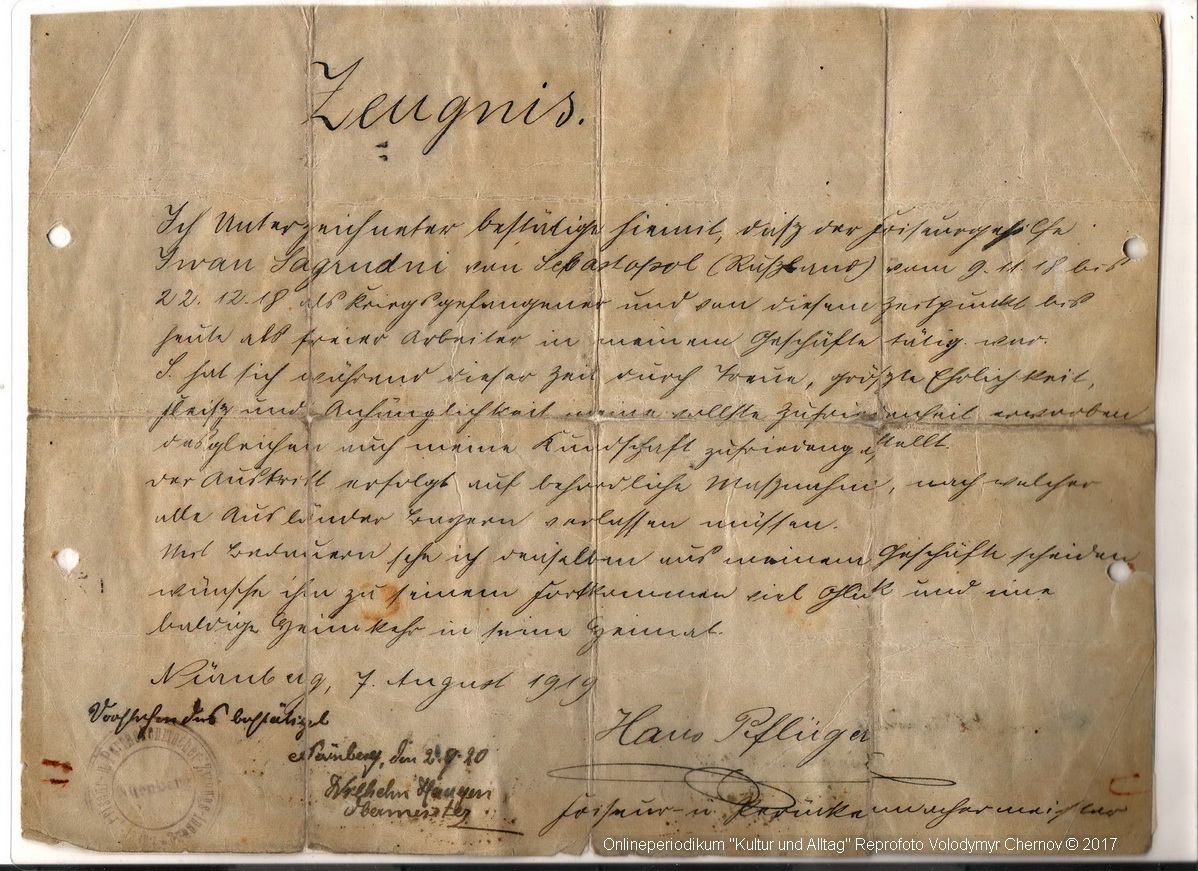 Zeugnis.
Ich Unterzeichneter bestätige hiemit, daß der Friseurgehilfe
Iwan Sagrudni von Sebastopol (Rußland) vom 9.11.18 bis
22.12.18 als Kriegsgefangener und von diesem Zeitpunkt bis
heute als freier Arbeiter in meinem Geschäfte tätig war.
S. hat sich während dieser Zeit durch Treue, größte Ehrlichkeit,
Fleiß und Anhänglichkeit meine vollste Zufriedenheit erworben
desgleichen auch meine Kundschaft zufriedengestellt.
Der Austritt erfolgt auf behördliche Maßnahme, nach welcher
alle Ausländer Bayern verlassen müssen.
Mit Bedauern sehe ich denselben aus meinem Geschäfte scheiden
wünsche ihm zu seinem Fortkommen viel Glück und eine
baldige Heimkehr in seine Heimat.
Nürnberg, 7. August 1919
Hans Pflüger
Friseur- u Perückenmachermeister
Vorstehendes bestätigt
Nürnberg, den 2.9.20
Wilhelm
Obermeister
Nürnberg
Onlineperiodikum "Kultur und Alltag" Reprofoto Volodymyr Chernov © 2017